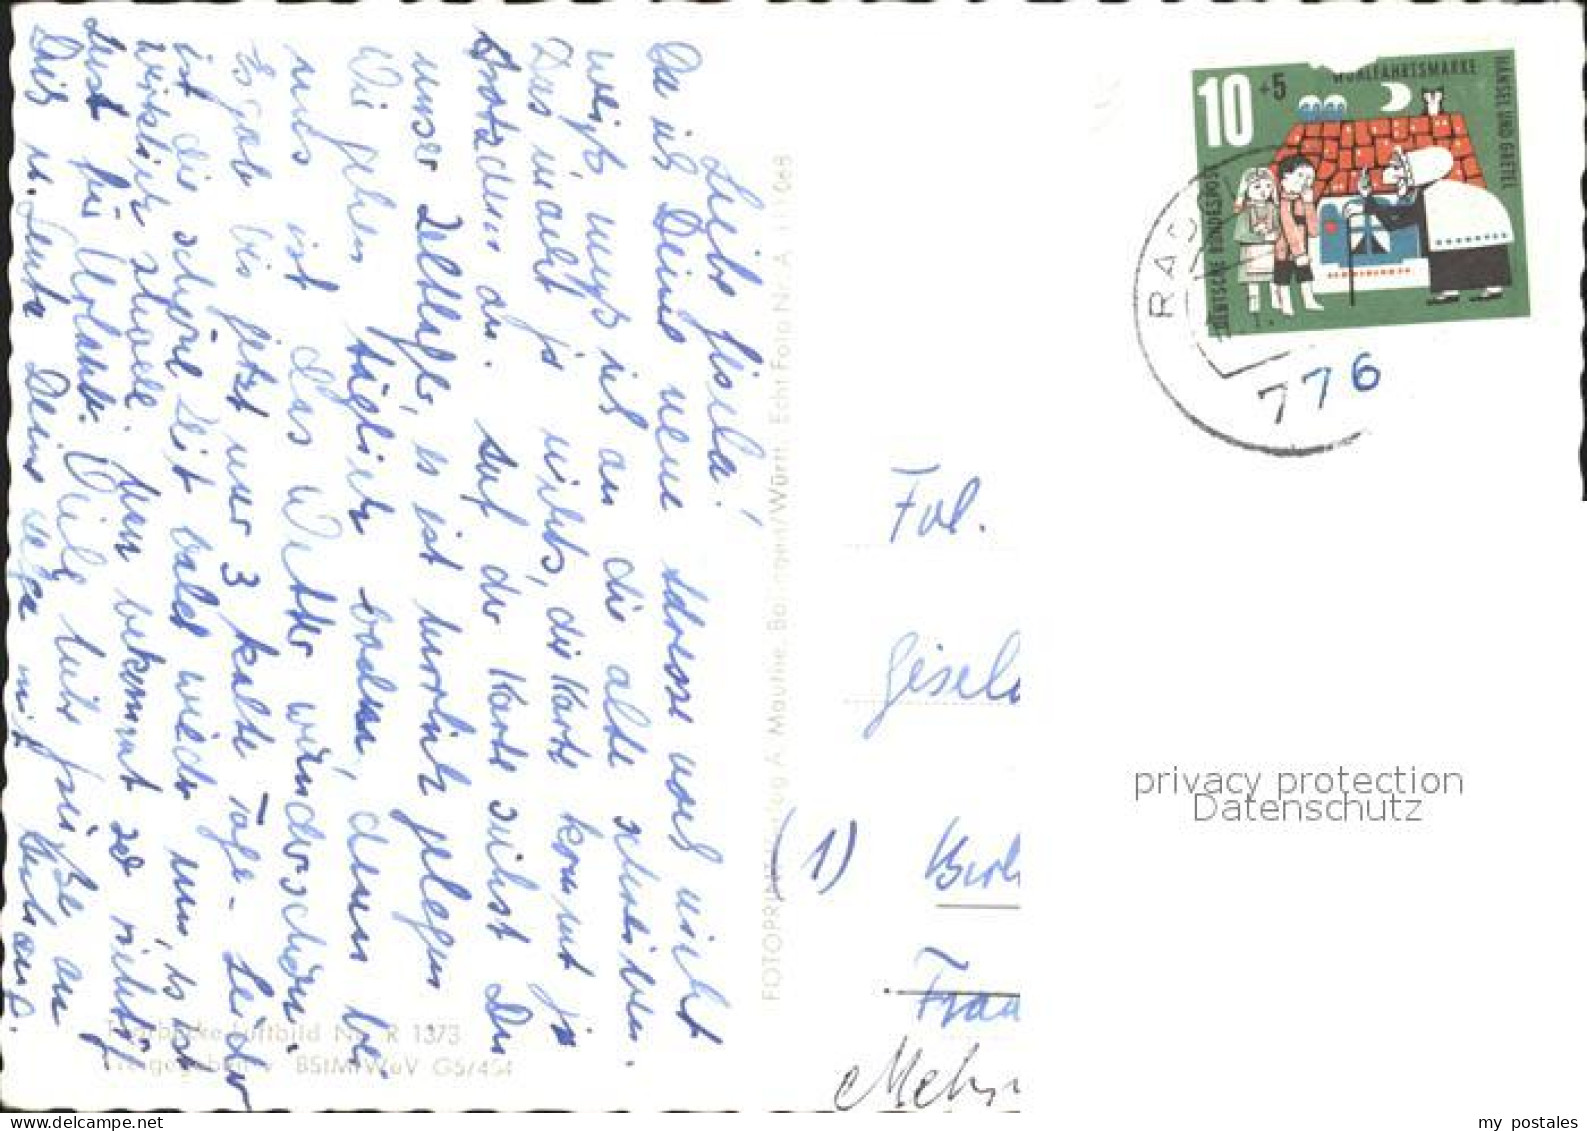 Liebe Gisela!
Da ich Deine neue Adresse noch nicht
weiß, muß ich an die alte schreiben.
Das macht ja nichts, die Karte kommt ja
trotzdem an. Auf der Karte siehst Du
unser Zeltlager, es ist herrlich gelegen
Wir gehen täglich baden, denn bei
uns ist das Wetter wunderschön.
Es gab bis jetzt nur 3 kalte Tage. Leider
ist die schöne Zeit bald wieder um, es ist
wirklich schade. Nun bekommt so richtig
Lust für Urlaub. Viele liebe Grüße an
Dich u. Leute Deine Helga mit
FOTOPRINT Verlag A. Mauthe, Württ. Echt Foto Nr. A 11 068
Luftbild Nr. R 1373
10
+5
WOHLFAHRTSMARKE
HÄNSEL UND GRETEL
DEUTSCHE BUNDESPOST
RAD
776
Frl.
Gisel
(1) Berl
Frau
privacy protection
Datenschutz
my postales